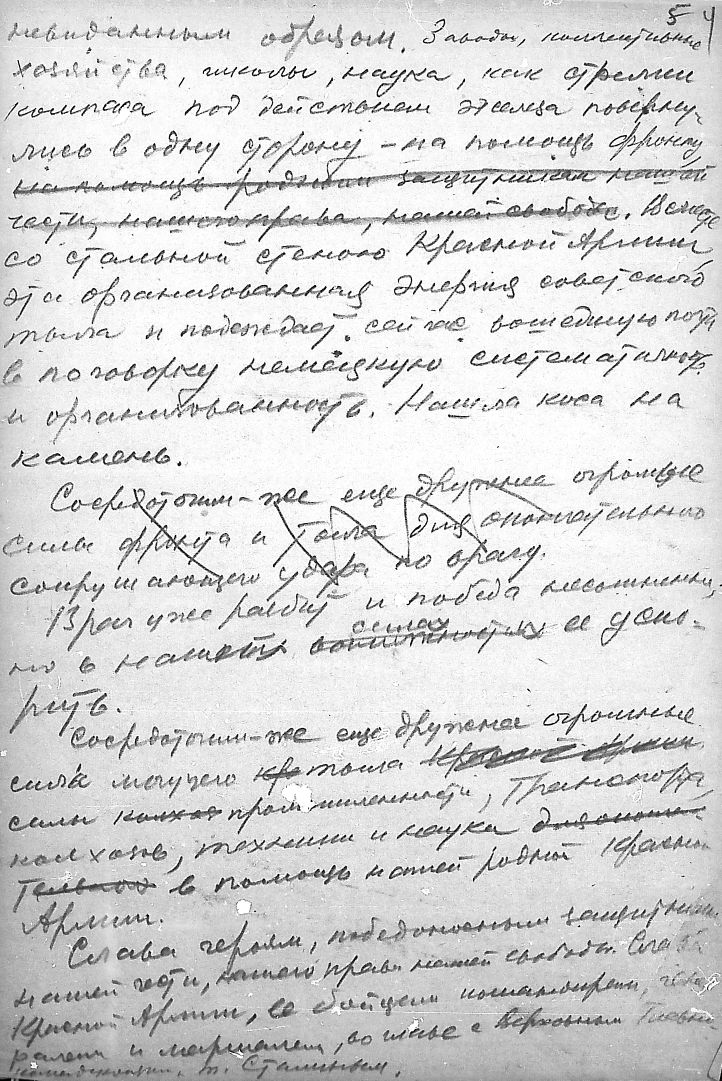 5 4
невиданным образом. Заводы, коллективные
хозяйства, школы, наука, как стрелки
компаса под действием железа поверну-
лись в одну сторону – на помощь фронту
на помощь родным защитникам нашей
чести, нашего права, нашей свободы. Вместе
со стальной стеною Красной Армии
эта организованная энергия советского
тыла и побеждает сейчас вошедшую почти
в поговорку немецкую систематичность
и организованность. Нашла коса на
камень.
Сосредоточим-же еще дружнее огромные
силы фронта и тыла для окончательного
сокрушающего удара по врагу.
Враг уже разбит и победа несомненна,
но в наших силах ее уско-
рить.
Сосредоточим-же еще дружнее огромные
силы могучего тыла
силы колхоз промышленности, транспорта,
колхозов, техники и науки
в помощь нашей родной Красной
Армии.
Слава героям, победоносным защитникам
нашей чести, нашего права нашей свободы. Слава
Красной Армии, ее бойцам командирам, гене-
ралам и маршалам, во главе с Верховным Главно-
командующим, т. Сталиным.